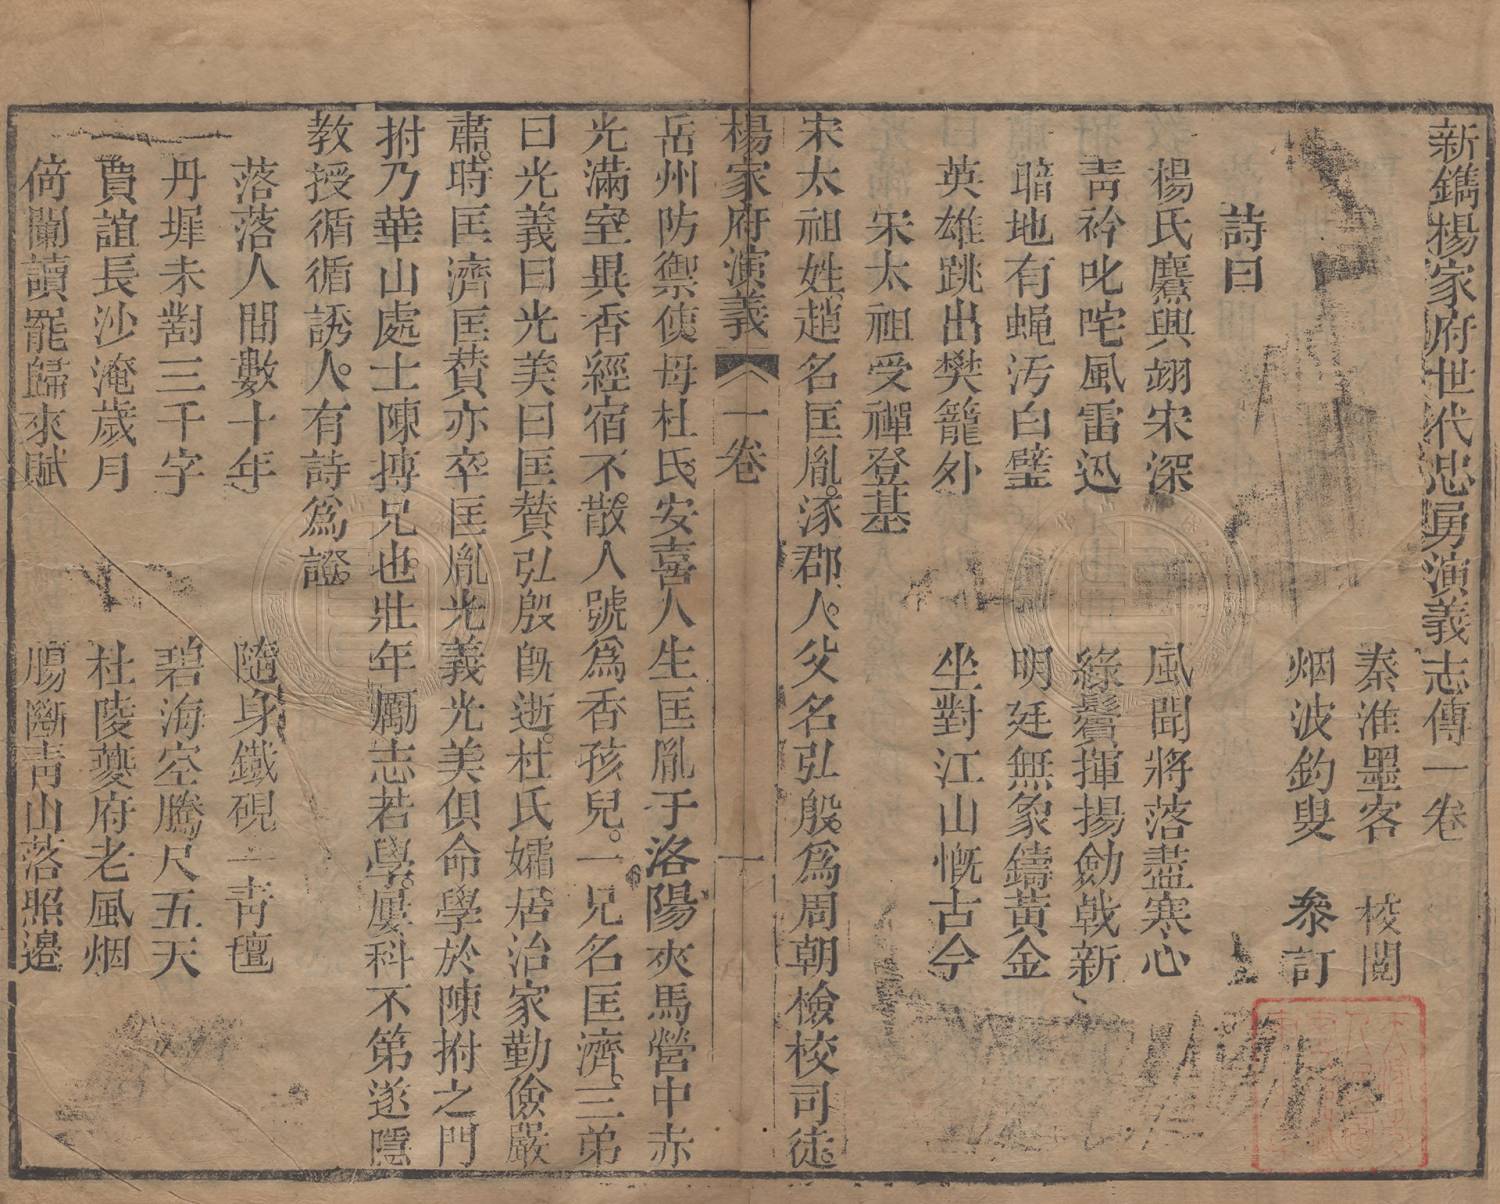 新鐫楊家府世代忠勇演義志傳一卷
秦淮墨客 校閱
烟波釣叟 參訂
詩曰
楊氏麕興翊宋深 風聞將落盡寒心
靑衿叱咤風雷迅 綠鬢揮揚劒戟新
暗地有蝇汚白璧 明廷無象鑄黃金
英雄跳出樊籠外 坐對江山慨古今
宋太祖受禪登基
宋太祖姓趙名匡胤涿郡人父名弘殷爲周朝檢校司徒
楊家府演義 一卷 一
岳州防禦使母杜氏安喜人生匡胤于洛陽夾馬營中赤
光滿室異香經宿不散人號爲香孩兒一兄名匡濟三弟
曰光義曰光美曰匡贊弘殷旣逝杜氏孀居治家勤儉嚴
肅時匡濟匡贊亦卒匡胤光義光美俱命學於陳拊之門
拊乃華山處士陳摶兄也壯年勵志若學屢科不第遂隱
教授循循誘人有詩爲證
落落人間數十年 隨身鐵硯一靑氊
丹墀未對三千字 碧海空騰尺五天
賈誼長沙淹歲月 杜陵夔府老風烟
倚闌讀罷歸來賦 腸斷靑山落照邊